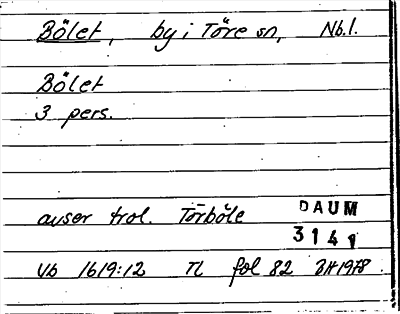 Bölet, by i Töre sn, Nb.l.
Bölet
3 pers.
avser trol. Törböle
DAUM
3141
Vb 1619:12 TL fol 82 BH 1978.